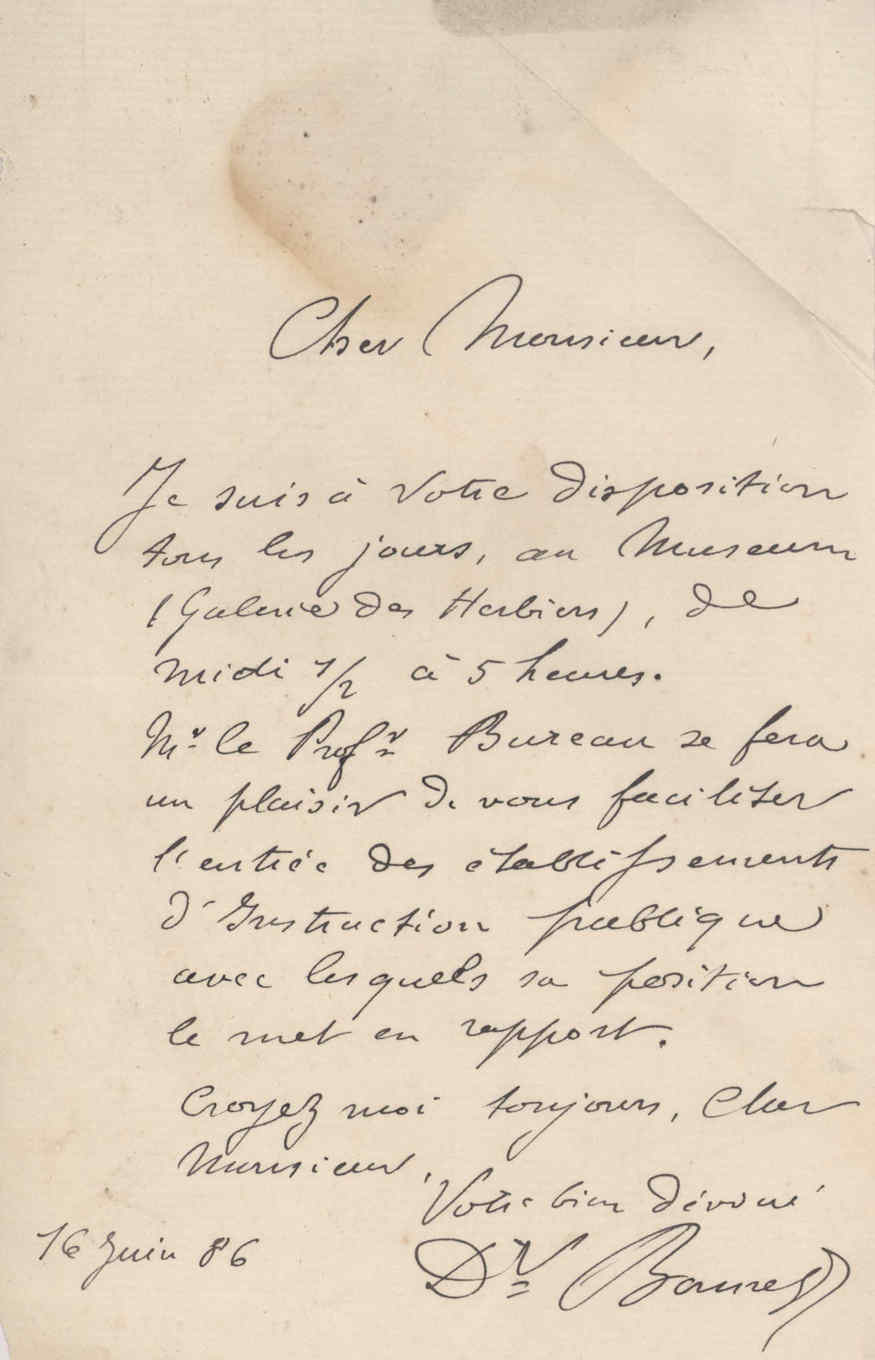 Cher Monsieur,
Je suis à votre disposition
tous les jours, au Museum
(Galerie des Herbiers), de
midi 1/2 à 5 heures.
Mr. le Profr. Bureau se fera
un plaisir de vous faciliter
l'entrée des établissements
d'Instruction publique
avec lesquels sa position
le met en rapport.
Croyez moi toujours, Cher
Monsieur,
Votre bien dévoué
Dr Bonnet
16 Juin 86